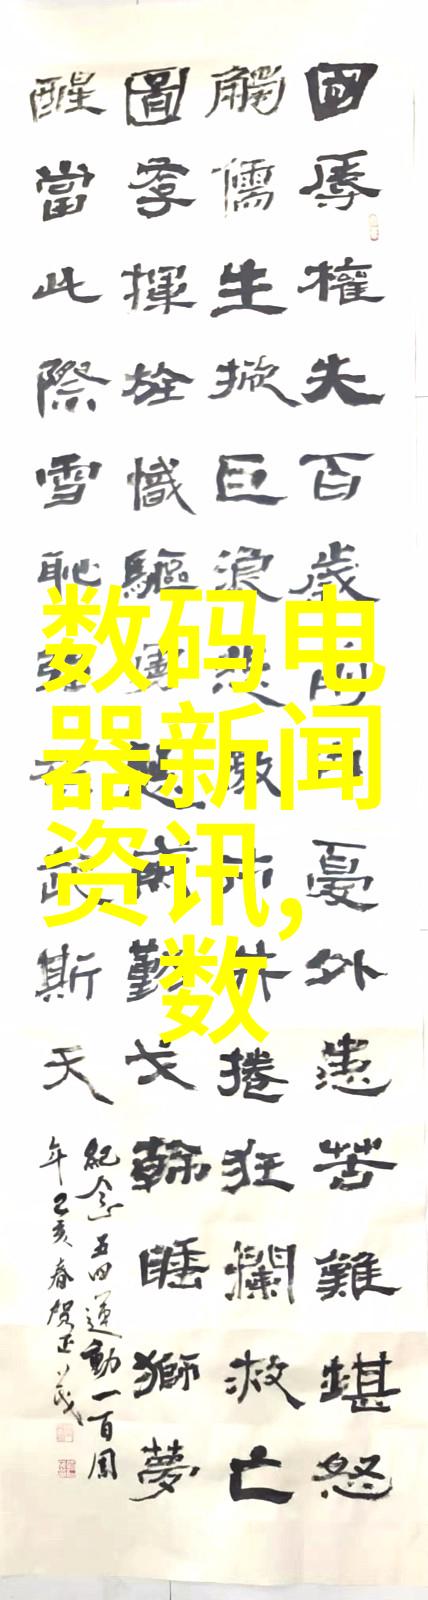 国辱權失百歲前內憂外患苦難堪怒
觸儒生掀巨浪市井捲狂瀾救亡
圖存揮旌幟驅戈睡獅夢
醒當此際雪恥強斯天
紀念五四運動一百周
年己亥春賀正
数码电
器新闻
资讯,
数